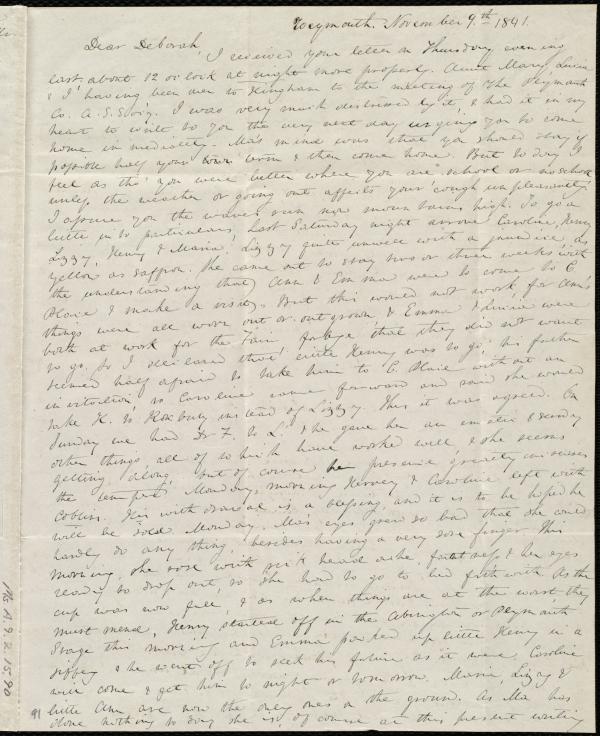 Weymouth. November 9.th 1841.
Dear Deborah,
I received your letter on Thursday evening
last about 12 o'clock at night more properly. Aunt Mary, Lucia
& I having been over to Hingham to the meeting of the Plymouth
Co. A. S. Soc'y. I was very much distressed by it, & had it in my
heart to write to you the very next day urging you to come
home immediately. Ma's mind was that you should stay if
possible half your term & then come home. But to day I
feel as tho' you were better where you are school or no school
unless the weather or going out affects your cough unpleasantly.
I assure you the waves run now mountains high. To go a
little into particulars, Last Saturday night arrove Caroline, Henry
Lizzy, Henry & Maria. Lizzy quite unwell with a jaundice, as
yellow as saffron. She came out to stay two or three weeks with
the understanding that Ann & Emma were to come to C.
Place & make a visit. But this would not work, for Ann's
things were all worn out or outgrown & Emma & were
both at work for the Fair that they did not want
to go. So I declared that little Henry was to go; his father
seemed half afraid to take him to C. Place without an
invitation, so Caroline came forward and said she would
take H. to Roxbury instead of Lizzy. Thus it was agreed. On
Sunday we had Dr F. to L. & she gave her an emetic & sunday
other things all of which have worked well & she seems
getting along, but of course her presence greatly increases
the tempest. Monday morning Hervey & Caroline left with
Coblin. His withdrawal is a blessing, and it is to be hoped he
will be sold Monday. Mas' eyes grew so bad that she could
hardly do any thing, besides having a very sore finger. This
morning, she rose with sick head ache, faintness & her eyes
ready to drop out, so she had to go to bed forthwith. As the
cup was now full, & as when things are at the worst they
must mend, Henry started off in the Abington or Plymouth
Stage this morning and Emma packed up little Henry in a
jiffey & he went off to seek his fortune as it were. Caroline
will come & get him to night or tomorrow. Maria, Lizzy &
little Ann are now the only ones on the ground. As Ma has
done nothing to day she is of course at this present writing
91
Ms. A. 9. 2. 15. 90